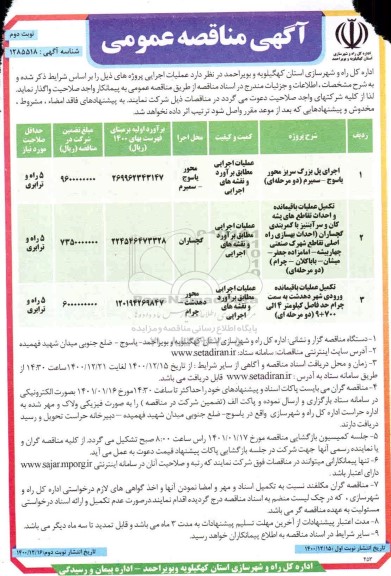 نوبت دوم
آگهی مناقصه عمومی
شناسه آگهی: ۱۲۸۵۵۱۸
اداره کل راه و شهرسازی
استان کهگیلویه و بویراحمد
اداره کل راه و شهرسازی استان کهگیلویه و بویراحمد در نظر دارد عملیات اجرایی پروژه های ذیل را بر اساس شرایط ذکر شده و
به شرح مشخصات، اطلاعات و جزئیات مندرج در اسناد مناقصه از طریق مناقصه عمومی به پیمانکار واجد صلاحیت واگذار نماید.
لذا از کلیه شرکتهای واجد صلاحیت دعوت می گردد در مناقصات ذیل شرکت نمایند. به پیشنهادهای فاقد امضاء، مشروط،
مخدوش و پیشنهادهایی که بعد از موعد مقرر واصل شود ترتیب اثر داده نخواهد شد.
ردیف
شرح پروژه
کمیت و کیفیت
محل اجرا
برآورد اولیه برمبنای فهرست بهای ۱۴۰۰ (ریال)
مبلغ تضمین شرکت در مناقصه (ریال)
حداقل صلاحیت مورد نیاز
۱
اجرای پل بزرگ سریز محور یاسوج - سمیرم (دو مرحله‌ای)
عملیات اجرایی مطابق برآورد و نقشه های اجرایی
محور یاسوج - سمیرم
۲
تکمیل عملیات باقیمانده و احداث تقاطع های پشه کان و سرآبنیز با کمربندی گچساران (احداث بهسازی راه اصلی تقاطع شهرک صنعتی چهاربیشه - امامزاده جعفر - میشان - باباکلان - چرام) (دو مرحله‌ای)
عملیات اجرایی مطابق برآورد و نقشه های اجرایی
گچساران
۵ راه و ترابری
۳
تکمیل عملیات باقیمانده ورودی شهر دهدشت به سمت چرام حد فاصل کیلومتر ۴ الی ۹+۷۰۰ (دو مرحله ای)
عملیات اجرایی مطابق برآورد و نقشه های اجرایی
محور دهدشت - چرام
۵ راه و ترابری
۱- دستگاه مناقصه گزار و نشانی: اداره کل راه و شهرسازی استان کهگیلویه و بویراحمد - یاسوج - ضلع جنوبی میدان شهید فهمیده
۲- آدرس سایت اینترنتی مناقصات: سامانه ستاد: www.setadiran.ir
۳- زمان و محل دریافت اسناد مناقصه و آگاهی از سایر شرایط: از تاریخ ۱۴۰۰/۱۲/۱۵ لغایت ۱۴۰۰/۱۲/۲۱ ساعت ۱۴:۳۰ از
طریق سامانه ستاد به آدرس: www.setadiran.ir قابل دریافت می باشد.
۴- مناقصه گران می بایست پاکات اسناد و پیشنهادهای خود را حداکثر تا ساعت ۱۴:۳۰ مورخ ۱۴۰۱/۰۱/۱۶ بصورت الکترونیکی
در سامانه ستاد بارگزاری و ارسال نموده و پاکت الف (تضمین شرکت در مناقصه) را به صورت فیزیکی ولاک و مهر شده به
اداره حراست اداره کل راه و شهرسازی واقع در یاسوج - ضلع جنوبی میدان شهید فهمیده - دبیرخانه حراست تحویل و رسید
دریافت دارند.
۵- جلسه کمیسیون بازگشایی مناقصه مورخ ۱۴۰۱/۰۱/۱۷ راس ساعت ۸:۰۰ صبح تشکیل می گردد. از کلیه مناقصه گران و
یا نماینده رسمی آنها جهت شرکت در جلسه بازگشایی پاکات پیشنهاد قیمت دعوت به عمل می آید.
۶- تنها پیمانکارانی میتوانند در مناقصات فوق شرکت نمایند که رتبه و صلاحیت آنان در سامانه اینترنتی www.sajar.mporg.ir
دارای اعتبار باشد.
۷- مناقصه گران مکلفند نسبت به تکمیل اسناد و مهر و امضا نمودن آنها و اخذ گواهی های لازم درخواستی اداره کل راه و
شهرسازی، که در چک لیست منضم به اسناد مناقصه درج گردیده اقدام نمایند. درصورت عدم تکمیل و ارائه اسناد درخواستی
مسئولیت به عهده مناقصه گر می باشد.
۸- مدت اعتبار پیشنهادات از آخرین مهلت تسلیم پیشنهادات به مدت ۳ ماه می باشد و قابل تمدید تا سه ماه دیگر می باشد.
۹- سایر شرایط در اسناد مناقصه به اطلاع پیمانکاران خواهد رسید.
تاریخ انتشار نوبت اول: ۱۴۰۰/۱۲/۱۵
تاریخ انتشار نوبت دوم: ۱۴۰۰/۱۲/۱۶
اداره کل راه و شهرسازی استان کهگیلویه وبویراحمد - اداره پیمان و رسیدگی